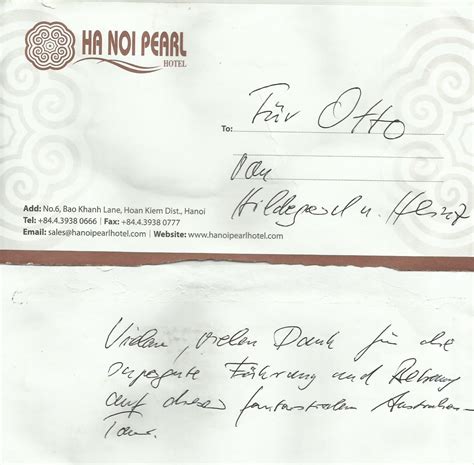 HA NOI PEARL
HOTEL
Für Otto
To:
von
Hildegard u. Heinz
Add: No.6, Bao Khanh Lane, Hoan Kiem Dist., Hanoi
Tel: +84.4.3938 0666 | Fax: +84.4.3938 0777
Email: sales@hanoipearlhotel.com | Website: www.hanoipearlhotel.com
Vielen, vielen Dank für die
supergute Führung und Betreuung
auf dieser fantastischen Australien-
Tour.